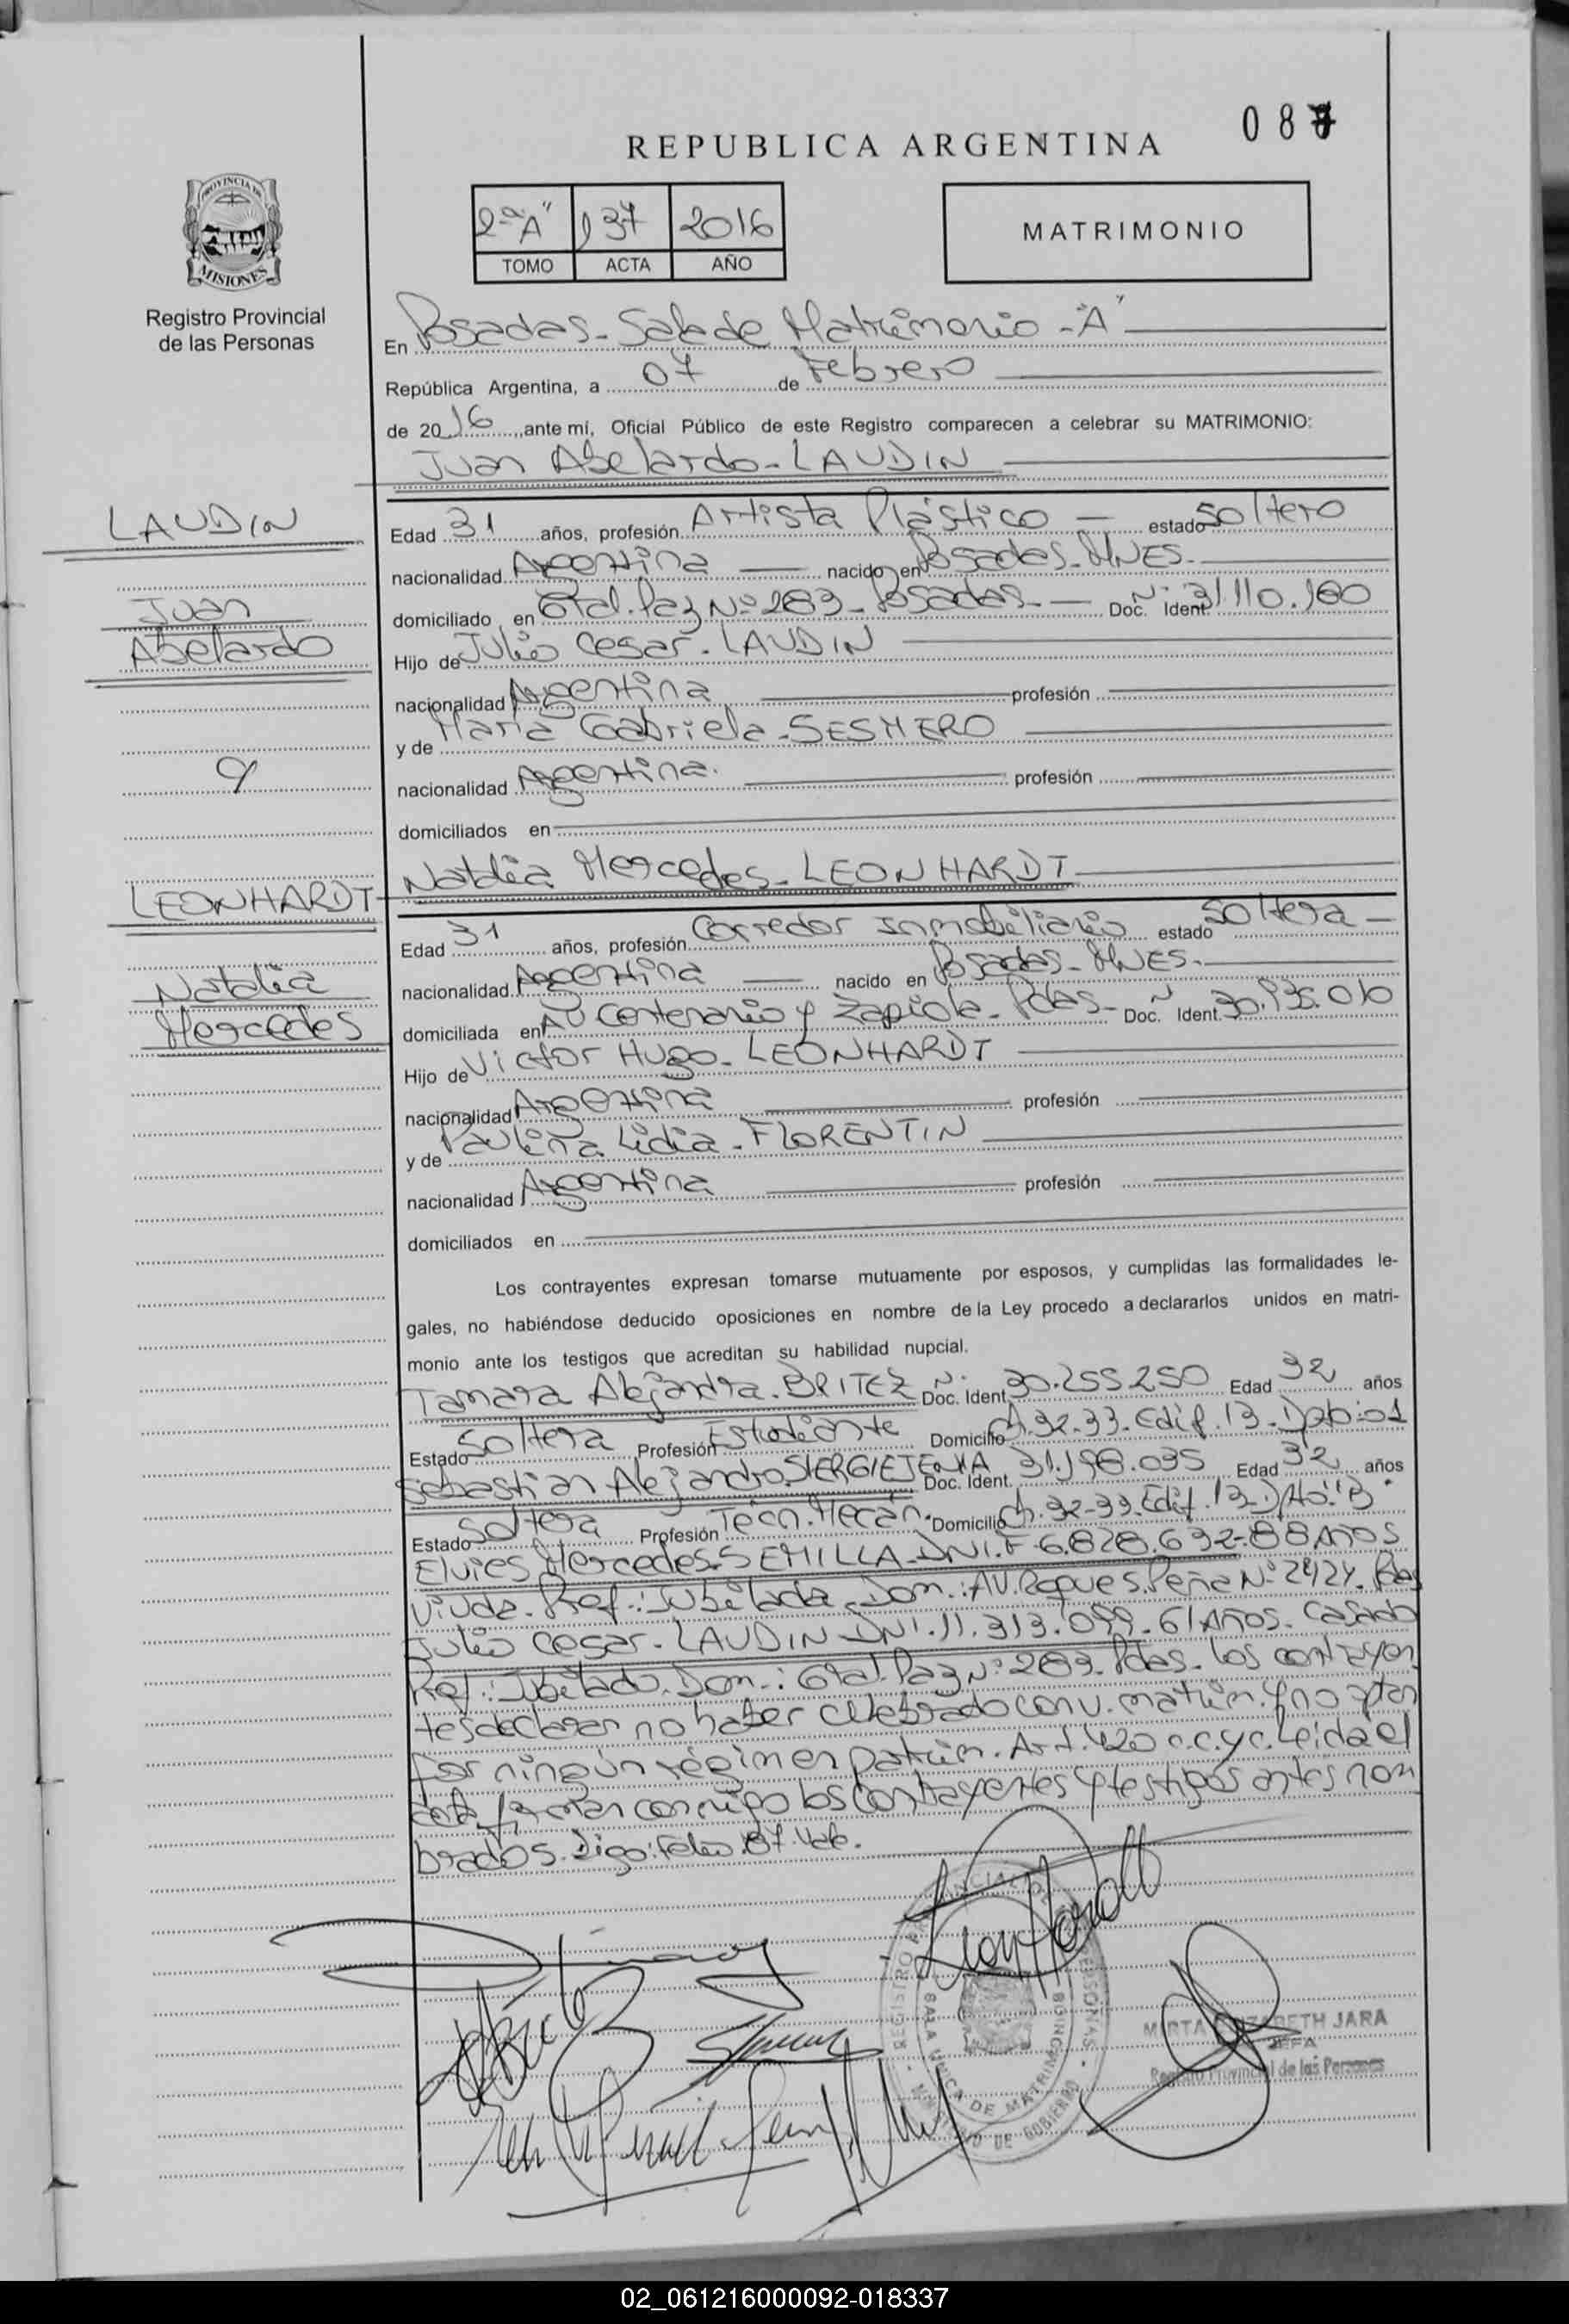 087
REPUBLICA ARGENTINA
PROVINCIA DE
MISIONES
Registro Provincial
de las Personas
2ª "A" 137 2016
TOMO ACTA AÑO
MATRIMONIO
En Posadas - Sala de Matrimonio - "A"
República Argentina, a 07 de Febrero
de 2016, ante mí, Oficial Público de este Registro comparecen a celebrar su MATRIMONIO:
Juan Abelardo - LAUDIN
LAUDIN
Juan
Abelardo
y
LEONHARDT
Natalia
Mercedes
Edad 31 años, profesión Artista Plástico - estado Soltero
nacionalidad Argentina - nacido en Posadas - MNES.
domiciliado en Gral. Paz Nº 283 - Posadas - Doc. Ident. 31.110.180
Hijo de Julio Cesar - LAUDIN
nacionalidad Argentina profesión
y de María Gabriela - SESMERO
nacionalidad Argentina. profesión
domiciliados en
Natalia Mercedes - LEONHARDT
Edad 31 años, profesión Corredor Inmobiliario estado Soltera -
nacionalidad Argentina - nacido en Posadas - MNES.
domiciliada en AV Centenario y Zapiola - Pdas - Doc. Ident. 30.935.010
Hijo de Victor Hugo - LEONHARDT
nacionalidad Argentina profesión
y de Paulina Lidia - FLORENTIN
nacionalidad Argentina profesión
domiciliados en
Los contrayentes expresan tomarse mutuamente por esposos, y cumplidas las formalidades le-
gales, no habiéndose deducido oposiciones en nombre de la Ley procedo a declararlos unidos en matri-
monio ante los testigos que acreditan su habilidad nupcial.
Tamara Alejandra - BRITEZ Doc. Ident. 30.255.250 Edad 32 años
Estado Soltera Profesión Estudiante Domicilio Ch. 32-33. Edif. 13 - Dpto: 01
Sebastian Alejandro SIERGIEJENIA Doc. Ident. 31.198.035 Edad 32 años
Estado Soltera Profesión Tecn. Mecán. Domicilio Ch. 32-33. Edif. 13 Dpto: "B"
Elvies Mercedes - SEMILLA - DNI. F 6.828.692 - 88 Años
Viuda. Prof.: Jubilada - Dom.: AV. Roque S. Peña Nº 2424. Pdas
Julio Cesar - LAUDIN - DNI. 11.313.099. 61 Años. Casado
Prof.: Jubilado. Dom.: Gral. Paz Nº 283. Pdas. Los contrayen
tes declaran no haber celebrado conv. matrim. y no optan
por ningún régimen patrim. Art. 420 c.c.y c. Leida el
acta, firman conmigo los contrayentes y testigos antes nom
brados. Digo: Folio: 87. Vale.
REGISTRO PROVINCIAL DE LAS PERSONAS
SALA UNICA DE MATRIMONIOS
MINISTERIO DE GOBIERNO
MIRTA ELIZABETH JARA
JEFA
Registro Provincial de las Personas
02_061216000092-018337